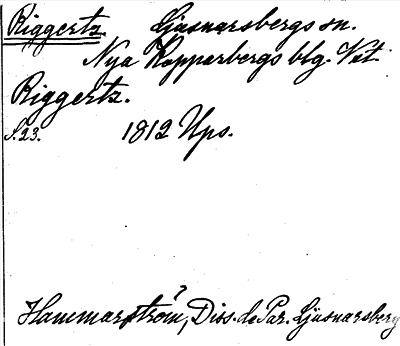 Riggertz. Ljusnarsbergs sn.
Nya Kopparbergs blg. Vät.
Riggertz.
S. 23. 1812 Ups.
Hammarström, Diss. de Par. Ljusnarsberg